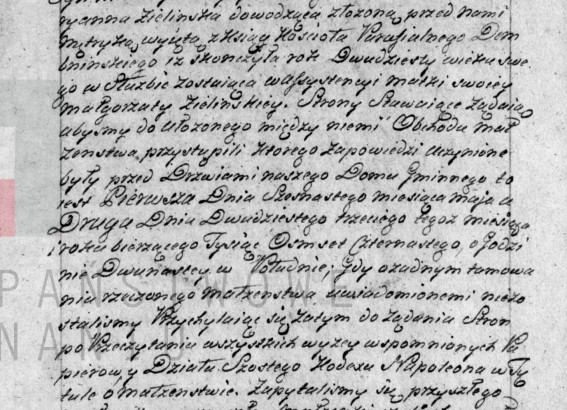 ryanna Zielinska dowodzącą złożoną przed nami
metryką wyjętą z Ksiąg Kościoła Parafialnego Dem
bninskiego iż skonczyła rok Dwudziesty wieku swe
go w Służbie zostaiąca w Assystencyi matki swoiey
małgorzaty Zielinskiey. Strony Stawaiące żądaią
abyśmy do ułożonego między niemi Obchodu mał
zenstwa przystąpili ktorego Zapowiedzi uczynione
były przed Drzwiami naszego Domu Gminnego to
iest Pierwsza Dnia Szesnastego miesiąca maja a
Druga Dnia Dwudziestego trzeciego tegoż miesiąca
i roku bierzącego Tysiąc Osmset Czternastego, o Godzi
nie Dwunastey w Południe; Gdy o żadnym tamowa
niu rzeczonego małzenstwa uwiadomionemi niezo
stalismy Przychylaiąc się zatym do żądania Stron
po Przeczytaniu wszystkich wyzey wspomnionych Pa
pierow, y Działu Szostego Kodexu Napoleona w Ty
tule o małzenstwie. Zapytalismy się przyszłego
PAŃSTWOWE